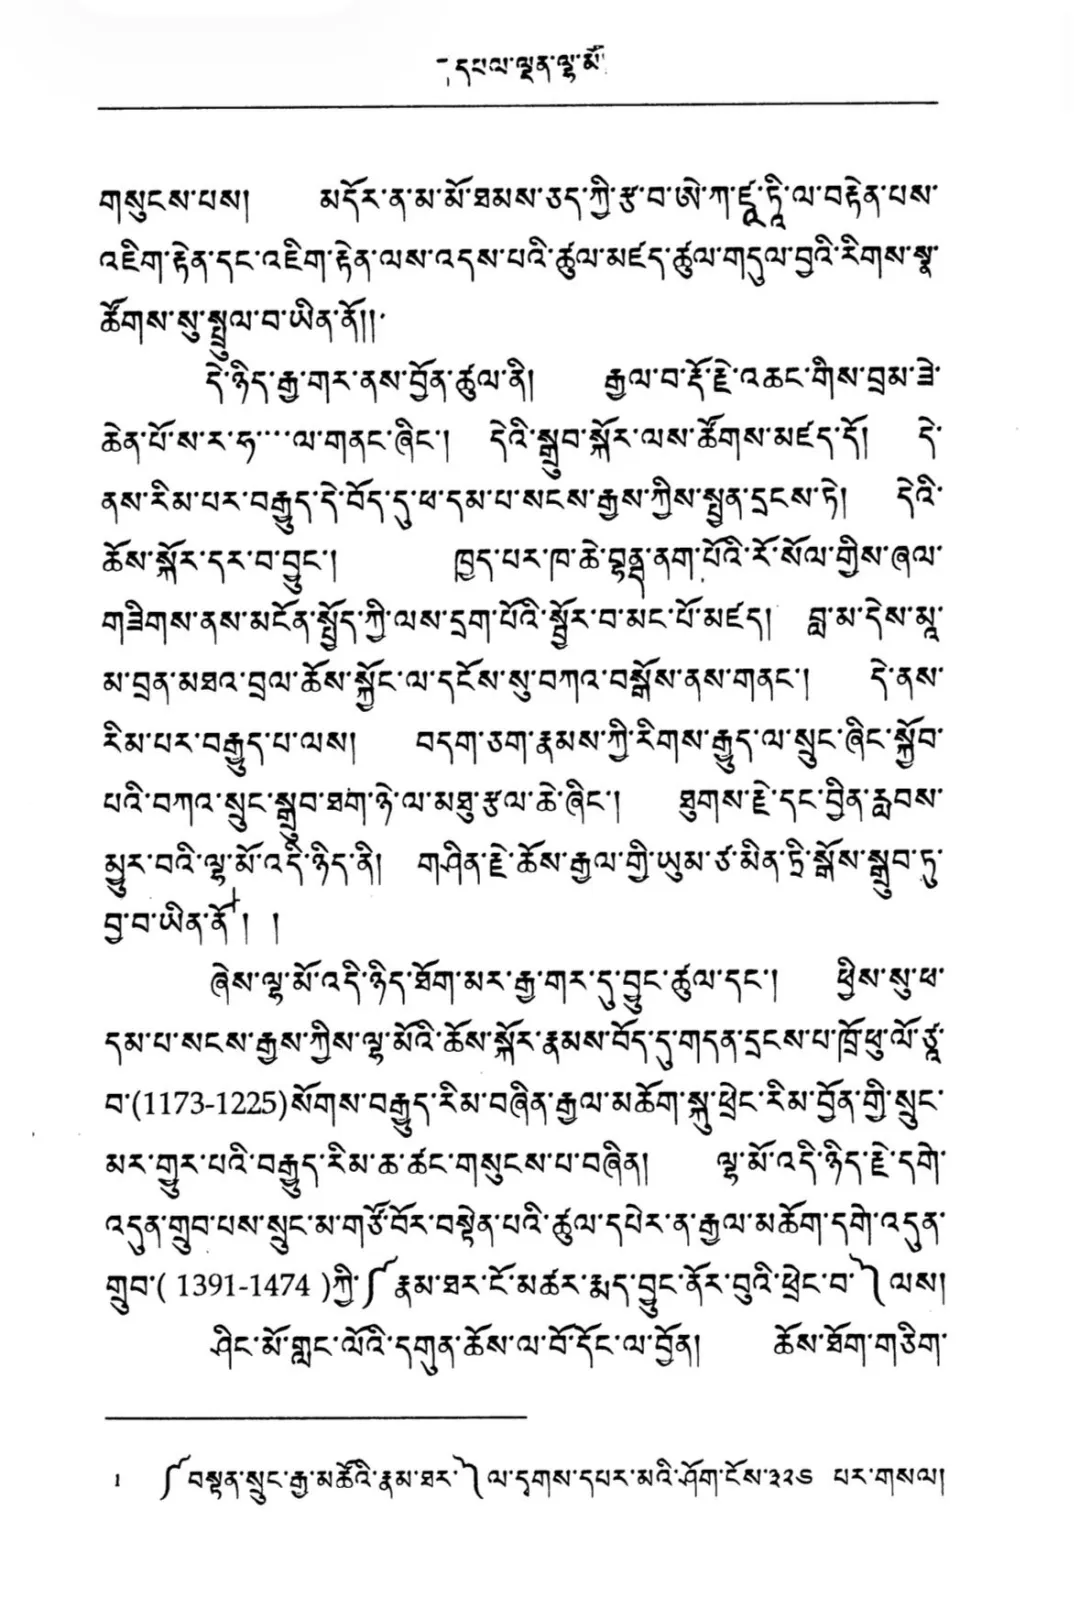 དཔལ་ལྡན་ལྷ་མོ།
གསུངས་པས། མདོར་ན་མ་མོ་ཐམས་ཅད་ཀྱི་རྩ་བ་ཨེ་ཀ་ཛཱ་ཊཱི་ལ་བརྟེན་པས་
འཇིག་རྟེན་དང་འཇིག་རྟེན་ལས་འདས་པའི་ཚུལ་མཛད་ཚུལ་གདུལ་བྱའི་རིགས་སྣ་
ཚོགས་སུ་སྤྲུལ་བ་ཡིན་ནོ།།
དེ་ཉིད་རྒྱ་གར་ནས་བྱོན་ཚུལ་ནི། རྒྱལ་བ་རྡོ་རྗེ་འཆང་གིས་བྲམ་ཟེ་
ཆེན་པོ་ས་ར་ཧ་...ལ་གནང་ཞིང་། དེའི་སྒྲུབ་སྐོར་ལས་ཚོགས་མཛད་དོ། དེ་
ནས་རིམ་པར་བརྒྱུད་དེ་བོད་དུ་ཕ་དམ་པ་སངས་རྒྱས་ཀྱིས་སྤྱན་དྲངས་ཏེ། དེའི་
ཆོས་སྐོར་དར་བ་བྱུང་། ཁྱད་པར་ཁ་ཆེ་བྷནྡྷ་ནག་པོའི་རོ་སོལ་གྱིས་ཞལ་
གཟིགས་ནས་མངོན་སྤྱོད་ཀྱི་ལས་དྲག་པོའི་སྦྱོར་བ་མང་པོ་མཛད། བླ་མ་དེས་མཱ་
མ་བྲན་མཐའ་བྲལ་ཆོས་སྐྱོང་ལ་དངོས་སུ་བཀའ་བསྒོས་ནས་གནང་། དེ་ནས་
རིམ་པར་བརྒྱུད་པ་ལས། བདག་ཅག་རྣམས་ཀྱི་རིགས་རྒྱུད་ལ་སྲུང་ཞིང་སྐྱོབ་
པའི་བཀའ་སྲུང་སྒྲུབ་ཐག་ཉེ་ལ་མཐུ་རྩལ་ཆེ་ཞིང་། ཐུགས་རྗེ་དང་བྱིན་རླབས་
མྱུར་བའི་ལྷ་མོ་འདི་ཉིད་ནི། གཤིན་རྗེ་ཆོས་རྒྱལ་གྱི་ཡུམ་ཙ་མིན་ཏྲི་སྒོས་སྒྲུབ་ཏུ་
བྱ་བ་ཡིན་ནོ། །
ཞེས་ལྷ་མོ་འདི་ཉིད་ཐོག་མར་རྒྱ་གར་དུ་བྱུང་ཚུལ་དང་། ཕྱིས་སུ་ཕ་
དམ་པ་སངས་རྒྱས་ཀྱིས་ལྷ་མོའི་ཆོས་སྐོར་རྣམས་བོད་དུ་གདན་དྲངས་པ་ཁྲོ་ཕུ་ལོ་ཙཱ་
བ་(1173-1225)སོགས་བརྒྱུད་རིམ་བཞིན་རྒྱལ་མཆོག་སྐུ་ཕྲེང་རིམ་བྱོན་གྱི་སྲུང་
མར་གྱུར་པའི་བརྒྱུད་རིམ་ཆ་ཚང་གསུངས་པ་བཞིན། ལྷ་མོ་འདི་ཉིད་རྗེ་དགེ་
འདུན་གྲུབ་པས་སྲུང་མ་གཙོ་བོར་བསྟེན་པའི་ཚུལ་དཔེར་ན་རྒྱལ་མཆོག་དགེ་འདུན་
གྲུབ་( 1391-1474 )ཀྱི་༼རྣམ་ཐར་ངོ་མཚར་རྨད་བྱུང་ནོར་བུའི་ཕྲེང་བ་༽ལས།
ཤིང་མོ་གླང་ལོའི་དགུན་ཆོས་ལ་བོ་དོང་ལ་བྱོན། ཆོས་ཐོག་གཅིག་
1 ༼བསྟན་སྲུང་རྒྱ་མཚོའི་རྣམ་ཐར་༽ལ་དྭགས་དཔར་མའི་ཤོག་ངོས་༣༢༦ པར་གསལ།